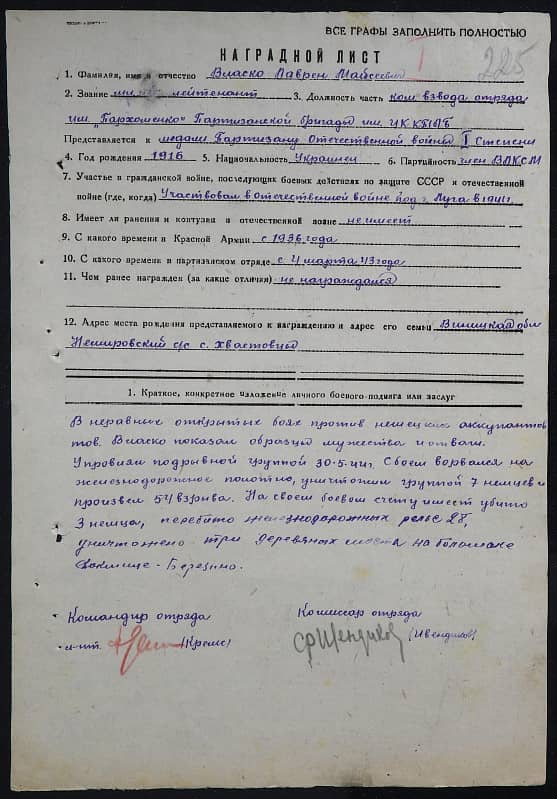 ВСЕ ГРАФЫ ЗАПОЛНИТЬ ПОЛНОСТЬЮ
225
НАГРАДНОЙ ЛИСТ
I
1. Фамилия, имя и отчество Власко Лаврен
2. Звание лейтенант 3. Должность часть ком. взвода отряда
им. "Пархоменко" Партизанской бригады им. ЦК КП/б/Б
Представляется к медали Партизану Отечественной войны I степени
4. Год рождения 1916 5. Национальность Украинец 6. Партийность член ВЛКСМ
7. Участие в гражданской войне, последующих боевых действиях по защите СССР и отечественной
войне (где, когда) Участвовал в отечественной войне под г. Луга в 1941 г.
8. Имеет ли ранения и контузии в отечественной войне не имеет
9. С какого времени в Красной Армии с 1936 года
10. С какого времени в партизанском отряде с 4 марта 43 года
11. Чем ранее награжден (за какие отличия) не награждался
12. Адрес места рождения представляемого к награждению и адрес его семьи Виницкая обл
Немировский с/с с. Хвастовцы
1. Краткое, конкретное изложение личного боевого подвига или заслуг
В неравных открытых боях против немецких аккупантов
тов. Власко показал образцы мужества и отваги.
Управляя подрывной группой 30.5.44 г. С боем ворвался на
железнодорожное полотно, уничтожил группой 7 немцев и
произвел 54 взрыва. На своем боевом счету имеет убито
3 немца, перебито железнодорожных рельс 28,
уничтожено три деревяных моста на
Докшице - Березино.
Командир отряда
л-нт.
Комиссар отряда
(Ивендиков)